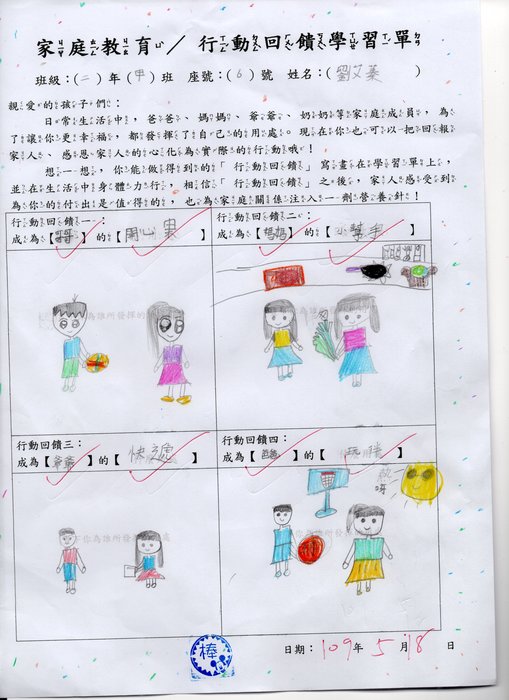 家庭教育／行動回饋學習單
班級：(二)年(甲)班 座號：(6)號 姓名：(劉艾蓁)
親愛的孩子們：
日常生活中，爸爸、媽媽、爺爺、奶奶等家庭成員，為
了讓你更幸福，都發揮了自己的用處。現在你也可以把回報
家人、感恩家人的心化為實際的行動哦！
想一想，你能做得到的「行動回饋」寫畫在學習單上，
並在生活中身體力行，相信「行動回饋」之後，家人感受到
為你的付出是值得的，也為家庭關係注入一劑營養針！
行動回饋一：
成為【哥哥】的【開心果】
行動回饋二：
成為【媽媽】的【小幫手】
行動回饋三：
成為【爺爺】的【快遞】
行動回饋四：
成為【爸爸】的【玩伴】
熱呀
棒
日期：109年5月18日